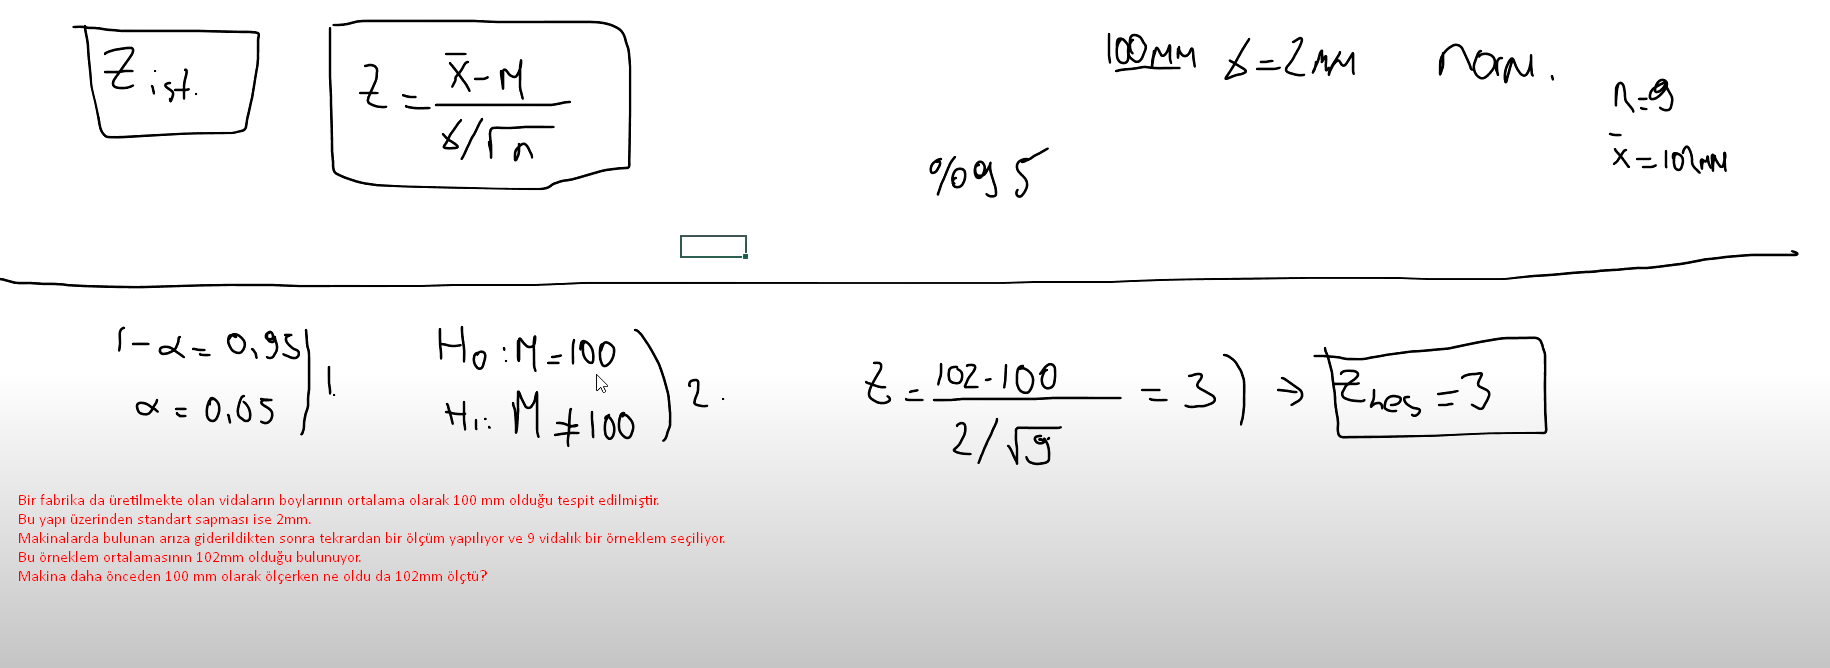 Z ist.
Z = (x̄ - M) / (δ/√n)
100mm δ=2mm norm.
n=9
x̄=102mm
%95
1-α=0.95
α=0.05
1.
H0: M=100
H1: M≠100
2.
Z = (102-100) / (2/√9) = 3 → Zhes = 3
Bir fabrika da üretilmekte olan vidaların boylarının ortalama olarak 100 mm olduğu tespit edilmiştir.
Bu yapı üzerinden standart sapması ise 2mm.
Makinalarda bulunan arıza giderildikten sonra tekrardan bir ölçüm yapılıyor ve 9 vidalık bir örneklem seçiliyor.
Bu örneklem ortalamasının 102mm olduğu bulunuyor.
Makina daha önceden 100 mm olarak ölçerken ne oldu da 102mm ölçtü?